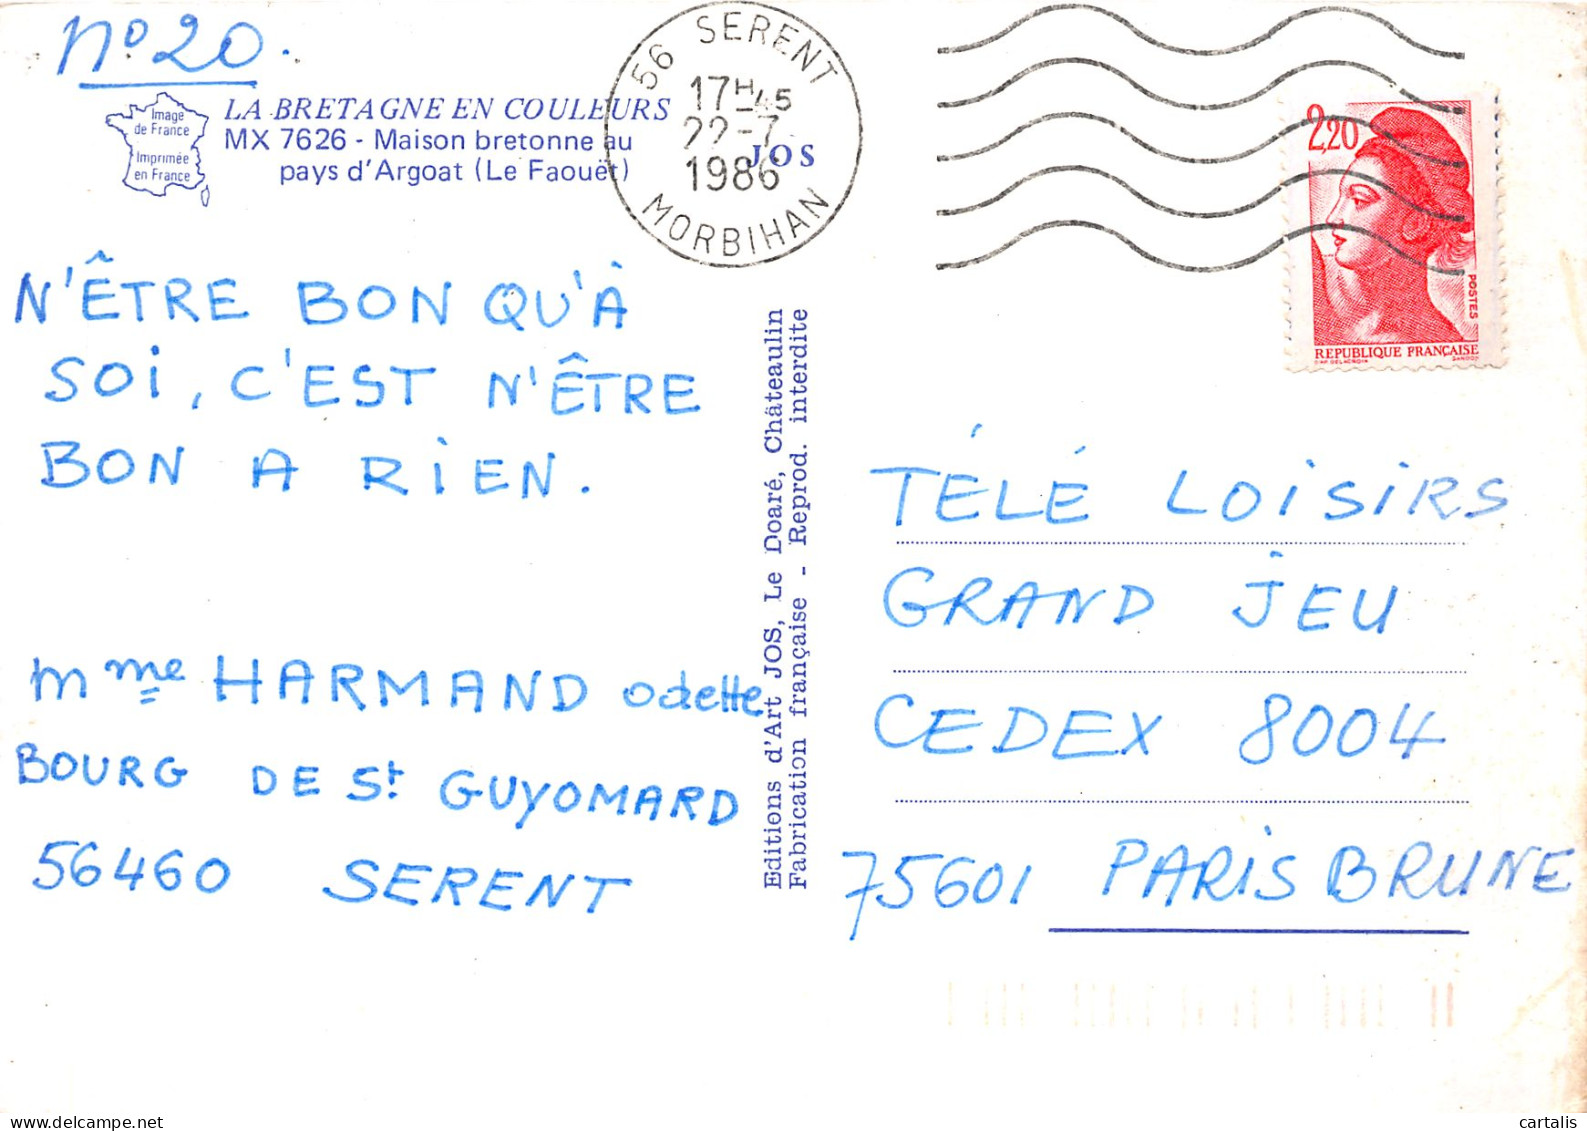 n° 20.
Image
de France
Imprimée
en France
LA BRETAGNE EN COULEURS
MX 7626 - Maison bretonne au
pays d'Argoat (Le Faouët)
JOS
56 SERENT
17H45
22-7
1986
MORBIHAN
2,20
POSTES
REPUBLIQUE FRANÇAISE
N'ÊTRE BON QU'À
SOI, C'EST N'ÊTRE
BON A RIEN.
Mme HARMAND Odette
BOURG DE St GUYOMARD
56460 SERENT
Editions d'Art JOS, Le Doaré, Châteaulin
Fabrication française - Reprod. interdite
TÉLÉ LOISIRS
GRAND JEU
CEDEX 8004
75601 PARIS BRUNE
cartalis